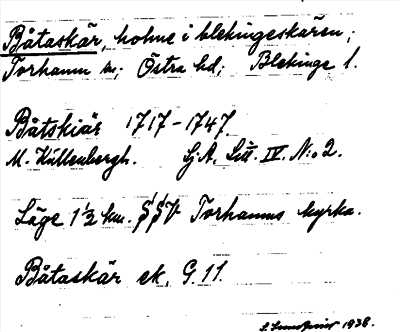 Båtaskär, holme i blekingeskären;
Torhamn sn; Östra hd; Blekinge l.
Båtskiär 1717-1747.
M. Küllenbergh. Sj.A. Litt. IV. N:o 2.
Läge 1½ km. SSV Torhamns kyrka.
Båtaskär ek. G. 11.
1938.